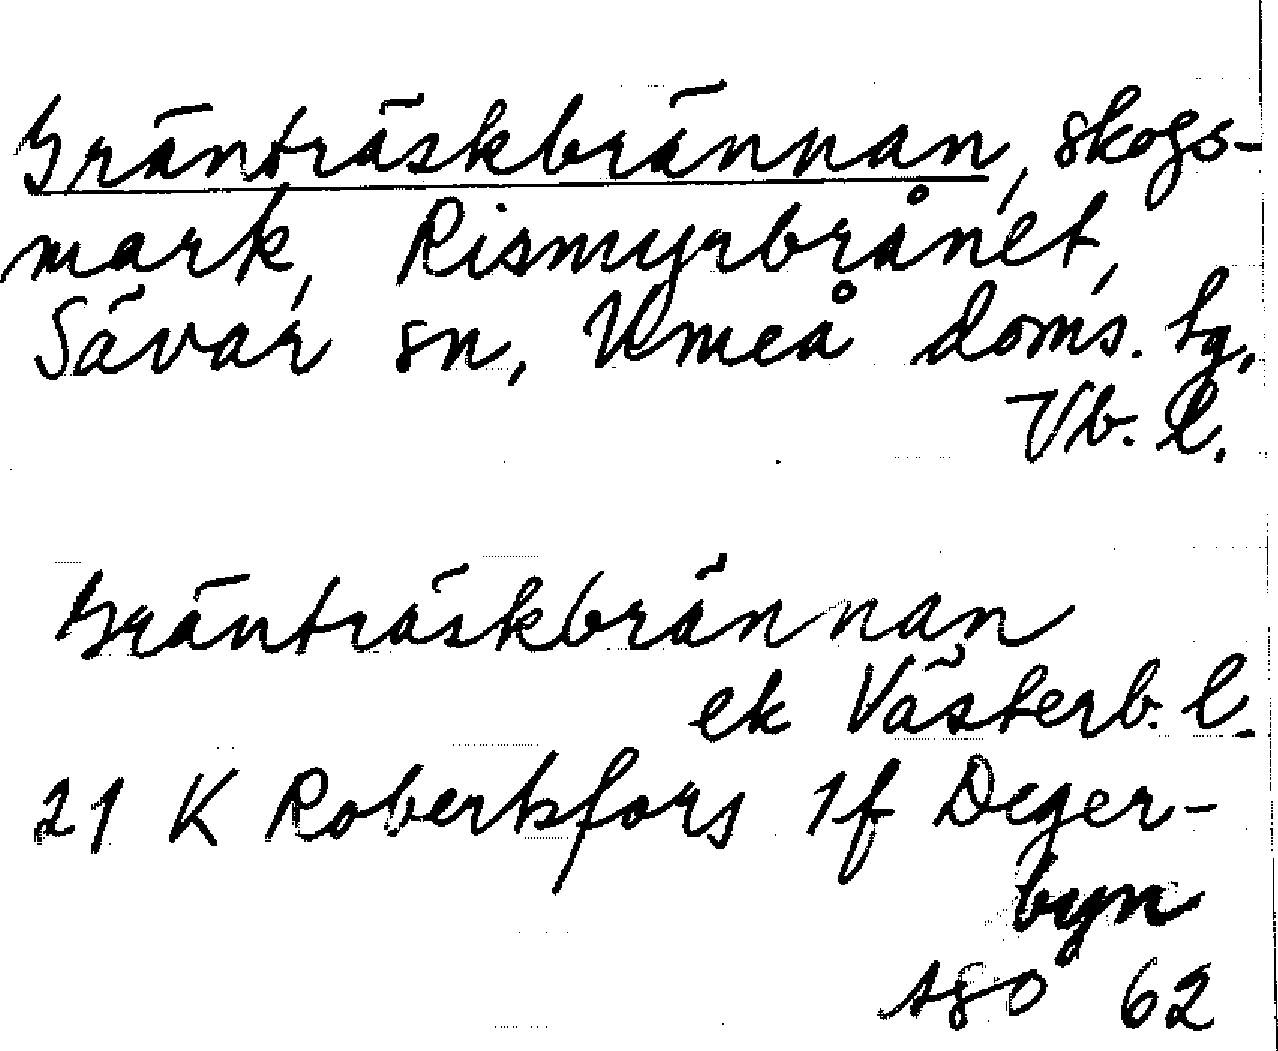 Gränträskbrännan, skogs-
mark, Rismyrbrånet,
Sävar sn, Umeå doms. tg,
Vb. l.
Gränträskbrännan
ek Västerb. l.
21 K Robertsfors 1f Deger-
byn
180 62